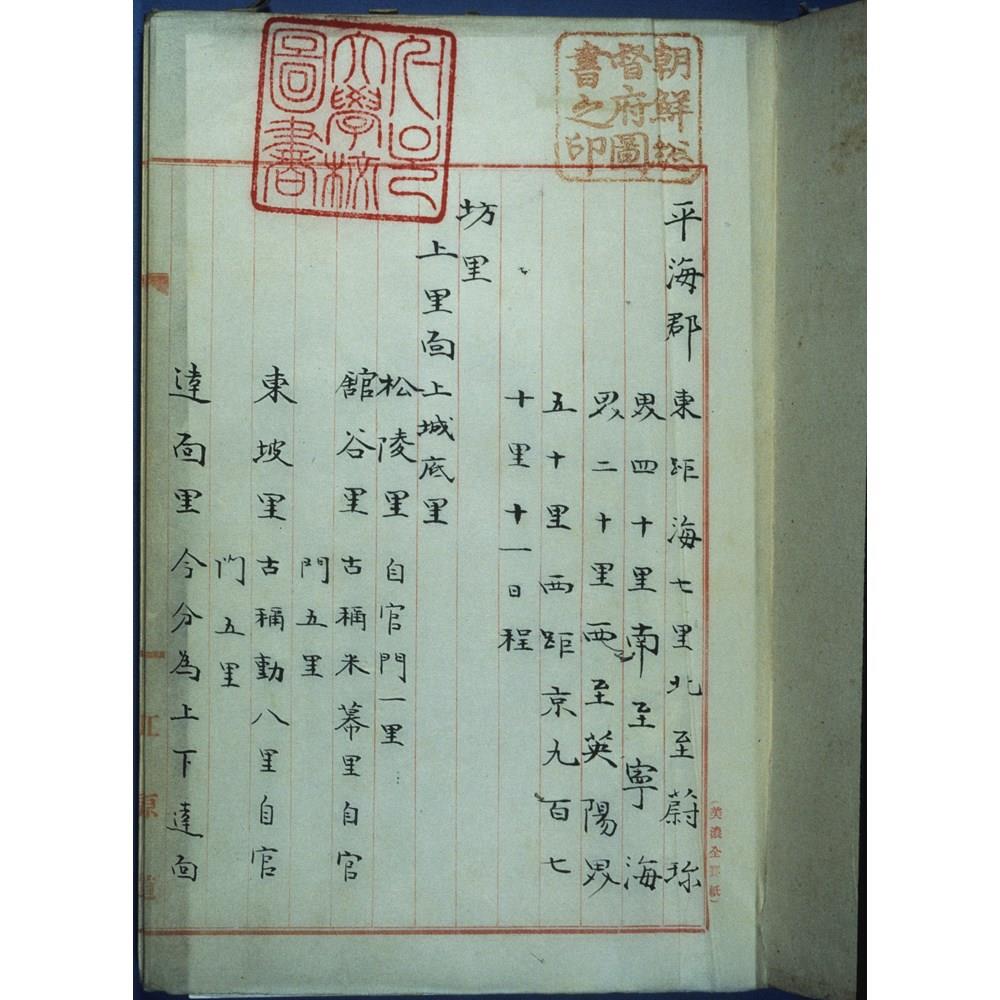 朝鮮總
督府圖
書之印
서울
大學校
圖書
平海郡 東距海七里北至蔚珍
界四十里南至寧海
界二十里西至英陽界
五十里西距京九百七
十里十一日程
坊里
上里面上城底里
松陵里 自官門一里
舘谷里 古稱米幕里自官
門五里
東坡里 古稱動八里自官
門五里
達面里 今分為上下達面
江原道
(美濃全罫紙)